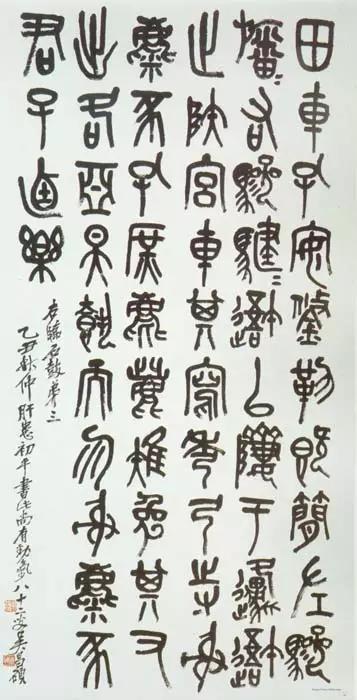 田車孔安鋚勒簡左驂
旛=右驂騝=避以隮于邍避戎
止陕宮車其寫秀弓寺射
麋豕孔庶麀鹿雉兔其又
出各亞昊執而勿射
君子卣樂
石鼓弟三
乙丑秋仲肝恙初平書此尚有勁氣八十二叟吳昌碩